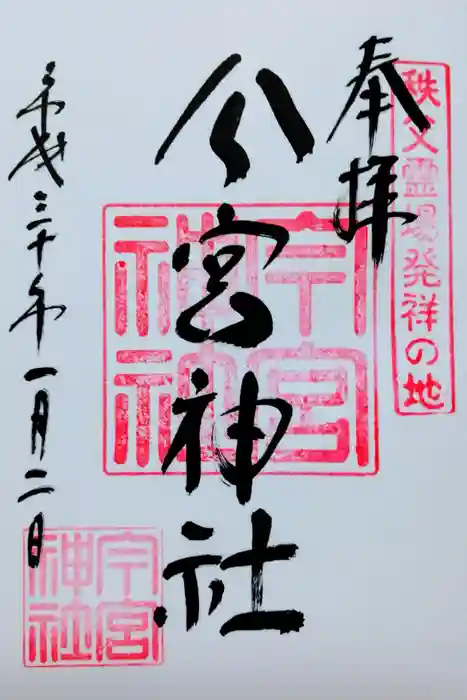 奉拝
秩父霊場発祥の地
今宮神社
平成三十年一月二日
今宮
神社